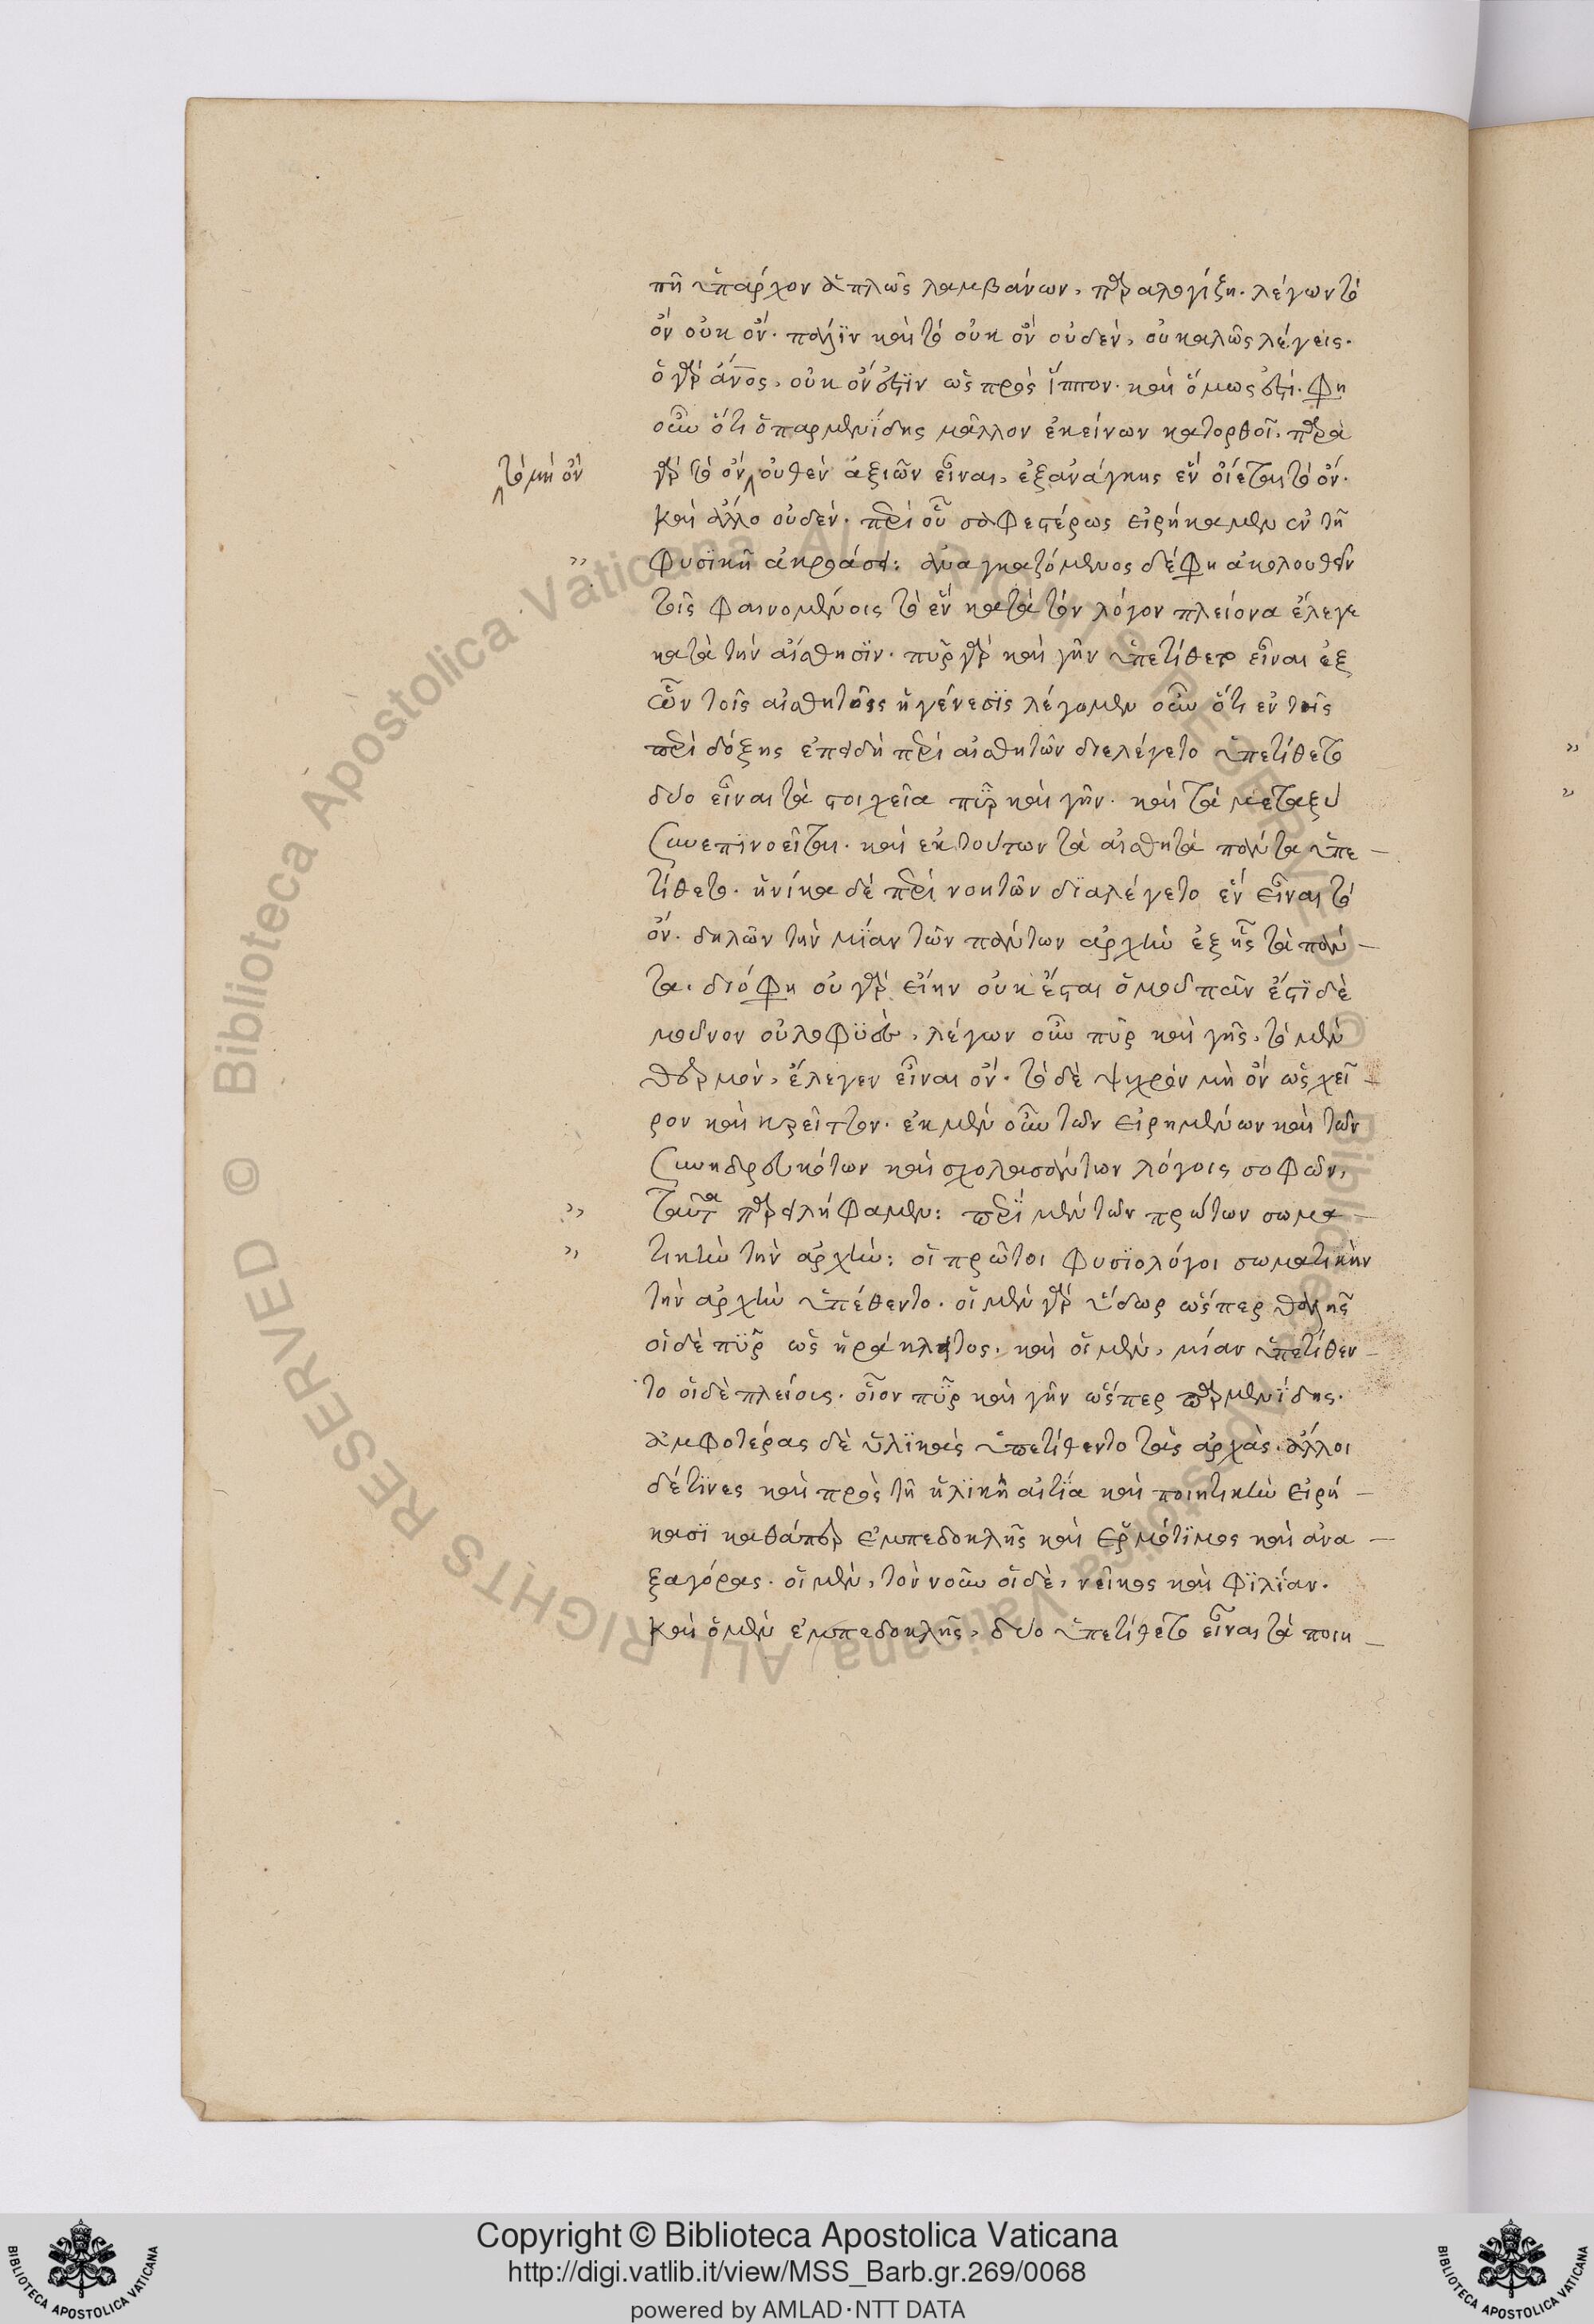 πῆ ὑπάρχον ἁπλῶς λαμβάνων, παραλογίζη. λέγων τὸ
ὂν οὐκ ὄν. πάλϊν καὶ τὸ οὐκ ὂν οὐδὲν, οὐ καλῶς λέγεις.
ὁ γὰρ ἄνος, οὐκ ὄν ἐστϊν ὡς πρὸς ἵππον. καὶ ὅμως ἐστί. φη
οὖν ὅτι ὁ παρμενΐδης μᾶλλον ἐκείνων κατορθοῖ. παρὰ
τὸ μὴ ὂν
γὰρ τὸ ὂν οὐθὲν ἀξιῶν εἶναι, ἐξανάγκης ἓν οἴεται τὸ ὄν.
καὶ ἄλλο οὐδέν. περὶ οὗ σαφεστέρως εἰρήκαμεν ἐν τῇ
φυσϊκῇ ἀκροάσει: ἀναγκαζόμενος δέ φη ἀκολουθεῖν
τοῖς φαινομένοις τὸ ἓν κατὰ τὸν λόγον πλείονα ἔλεγε
κατὰ τὴν αἴσθησϊν. πῦρ γὰρ καὶ γῆν ὑπετίθετο εἶναι ἐξ
ὧν τοῖς αἰσθητοῖς ἡ γένεσϊς λέγομεν οὖν ὅτι ἐν τοῖς
περὶ δόξης ἐπειδὴ περὶ αἰσθητῶν διελέγετο ὑπετίθετο
δύο εἶναι τὰ στοιχεῖα πῦρ καὶ γῆν. καὶ τὰ μεταξὺ
συνεπϊνοεῖται. καὶ ἐκ τούτων τὰ αἰσθητὰ πάντα ὑπε
τίθετο. ἡνίκα δὲ περὶ νοητῶν δϊαλέγετο ἓν εἶναι τὸ
ὄν. δηλῶν τὴν μΐαν τῶν πάντων ἀρχὴν ἐξ ἧς τὰ πάν
τα. διό φη οὐ γὰρ εἴην οὐκ ἔσται ὁμοῦ πᾶν ἔστϊ δὲ
μοῦνον οὐλοφϋὲς, λέγων οὖν πῦρ καὶ γῆς, τὸ μὲν
θερμὸν, ἔλεγεν εἶναι ὄν. τὸ δὲ ψυχρὸν μὴ ὂν ὡς χεῖ
ρον καὶ κρεῖττον. ἐκ μὲν οὖν τῶν εἰρημένων καὶ τῶν
συνηδρευκότων καὶ σχολασάντων λόγοις σοφῶν,
ταῦτα παρειλήφαμεν: περΐ μὲν τῶν πρώτων σωμα
τικὴν τὴν ἀρχὴν: οἱ πρῶτοι φυσϊολόγοι σωματικὴν
τὴν ἀρχὴν ὑπέθεντο. οἱ μὲν γὰρ ὕδωρ ὥσπερ θάλης
οἱ δὲ πῦρ ὡς ἡράκλειτος. καὶ οἱ μὲν, μίαν ὑπετίθεν
το οἱ δὲ πλείοις. οἷον πῦρ καὶ γῆν ὥσπερ παρμενΐδης.
ἀμφοτέρας δὲ ὑλϊκὰς ὑπετίθεντο τὰς ἀρχὰς. ἄλλοι
δέ τϊνες καὶ πρὸς τῇ ὑλϊκῇ αἰτΐα καὶ ποιητικὴν εἰρή
κασϊ καθάπερ ἐμπεδοκλῆς καὶ ἑρμότϊμος καὶ ἀνα
ξαγόρας. οἱ μὲν, τὸν νοῦν οἱ δὲ, νεῖκος καὶ φϊλΐαν.
καὶ ὁ μὲν ἐμπεδοκλῆς, δύο ὑπετίθετο εἶναι τὰ ποιη
Copyright © Biblioteca Apostolica Vaticana
http://digi.vatlib.it/view/MSS_Barb.gr.269/0068
powered by AMLAD·NTT DATA
BIBLIOTECA APOSTOLICA VATICANA
BIBLIOTECA APOSTOLICA VATICANA
© Biblioteca Apostolica Vaticana ALL RIGHTS RESERVED
© Biblioteca Apostolica Vaticana ALL RIGHTS RESERVED